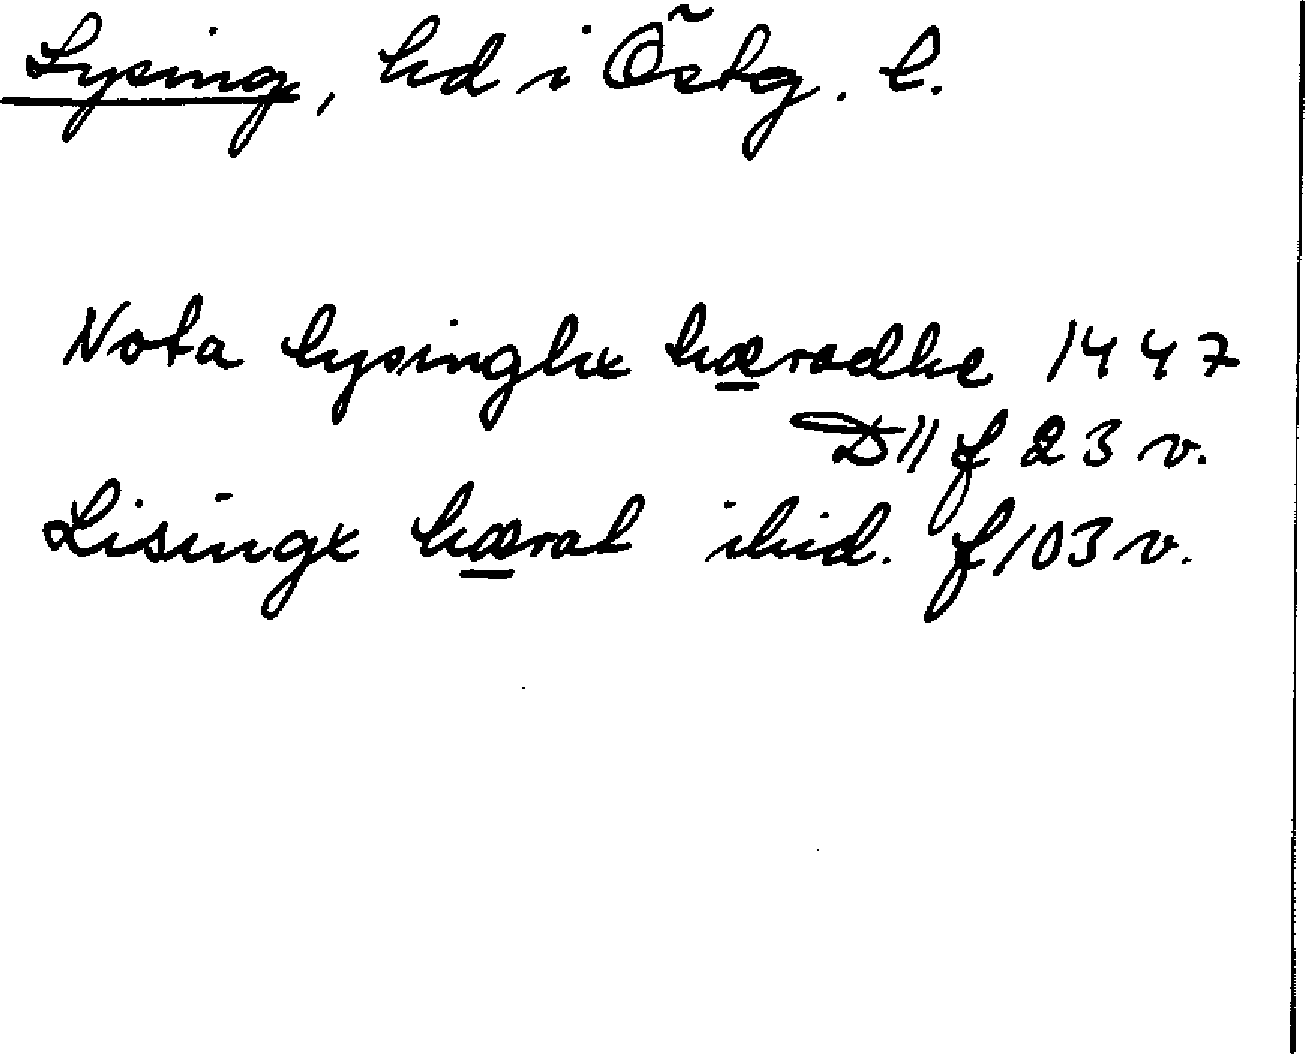 Lysing, hd i Östg. l.
Nota lysinghx hæradhe 1447
D11 f 23 v.
Lisingx hærat ibid. f 103 v.